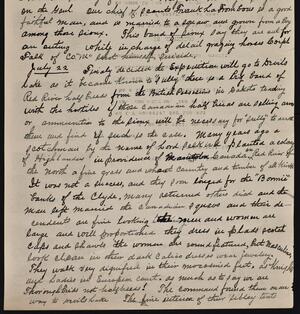 on the hunt Our chief of scouts, Frank La Framboise is a good
faithful man, and is married to a squaw and grown family
among these Sioux. This band of Sioux say they are out for
an outing While in charge of detail grazing horses Corpl
of "Co M" shot himself, suicide,
July 22 Finaly decided the Expedition will go to Devils
Lake as it became known to Sully there is a large band of
Red River half breeds from the British Possessions in Dakota trading
with the hostiles if these Canadian half breeds are selling arms
or ammunition to the Sioux will be necessary for Sully to
them and find if such is the case. Many years ago a
Scotchman by the name of Lord Selkirk planted a colony
of Highlanders in providence of Canada, Red River of
the North a fine grass and wheat country and timber of all kinds
It was not a success, and they longed for the "Bonnie
banks of the Clyde, Many returned others died and the
men left married the Canadian squaws and their de-
cendents are fine looking the men and women are
large and well proportioned they dress in plaid scotch
caps and shawls the women are
look clean in their dark calico dresses wear jewelry,
They walk very dignified in their moccasined feet,
Ladies in European court, as much as to say we are
thoroughbreds not halfbreeds! The command found them on our
way to Devils Lake The fine interior of their